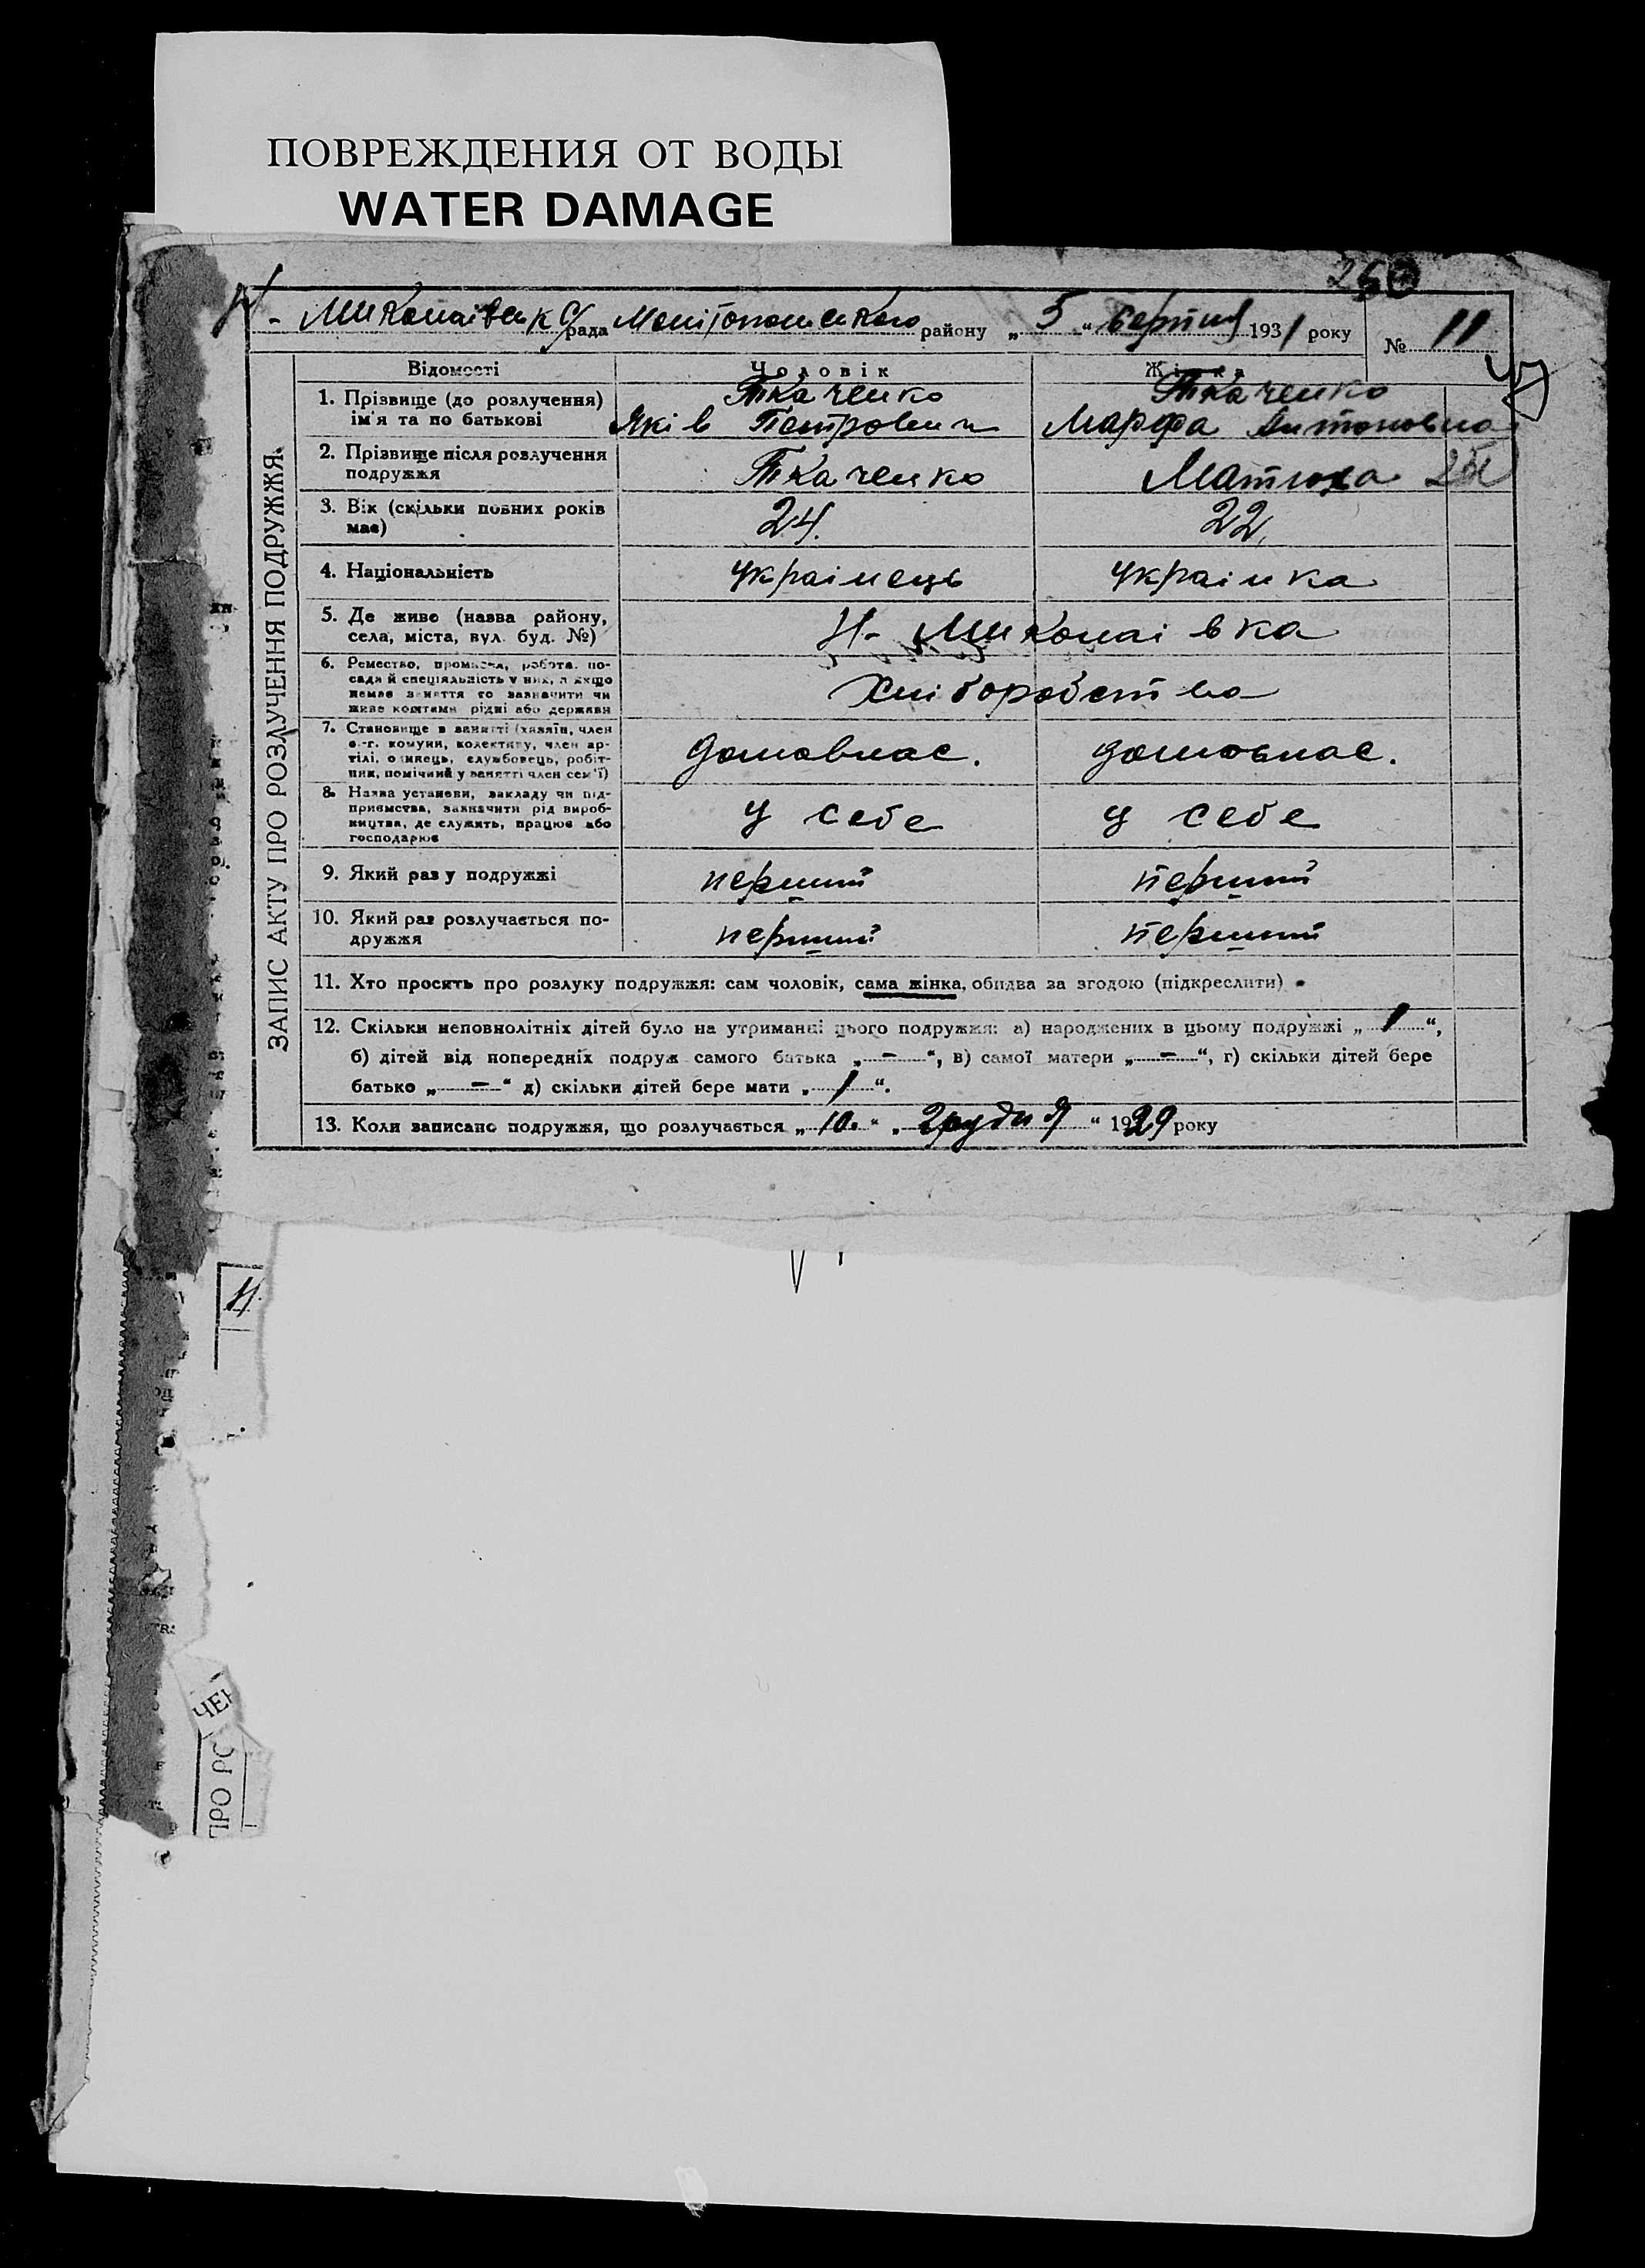 ПОВРЕЖДЕНИЯ ОТ ВОДЫ
WATER DAMAGE
Н- Миколаївська рада Мелітопольського району „ 5 “ серпня 1931 року № 11
ЗАПИС АКТУ ПРО РОЗЛУЧЕННЯ ПОДРУЖЖЯ.
Відомості Чоловік Жінка
1. Прізвище (до розлучення) Ткаченко Ткаченко
ім'я та по батькові Яків Петрович Марфа Антоновна
2. Прізвище після розлучення
подружжя Ткаченко Матюха
3. Вік (скільки повних років
має) 24. 22,
4. Національність українець українка
5. Де живе (назва району,
села, міста, вул. буд. №) Н- Миколаівка
6. Ремество, промисел, робота, по-
сада й спеціяльність у них, а якщо
немає заняття то зазначити чи
живе коштами рідні або держави
Хліборобства
7. Становище в занятті (хазяїн, член
с.-г. комуни, колективу, член ар-
тілі, одинець, службовець, робіт-
ник, помічний у занятті член сем'ї)
домовлас. домовлас.
8. Назва установи, закладу чи під-
приємства, зазначити рід вироб-
ництва, де служить, працює або
господарює
у себе у себе
9. Який раз у подружжі перший перший
10. Який раз розлучається по-
дружжя перший перший
11. Хто просить про розлуку подружжя: сам чоловік, сама жінка, обидва за згодою (підкреслити)
12. Скільки неповнолітніх дітей було на утриманні цього подружжя: а) народжених в цьому подружжі „ 1 “,
б) дітей від попередніх подруж самого батька „ – “, в) самої матери „ – “, г) скільки дітей бере
батько „ – “ д) скільки дітей бере мати „ 1 “.
13. Коли записано подружжя, що розлучається „ 10. “ „ Грудня “ 1929 року
Н
ЧЕН
ПРО РО